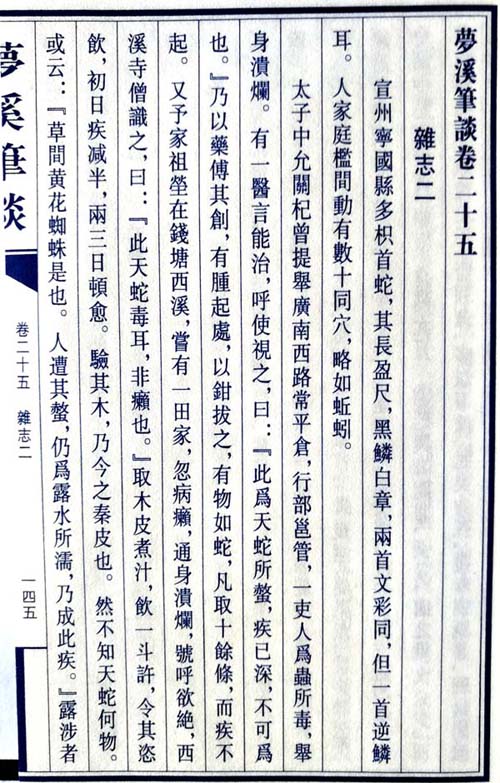 夢溪筆談卷二十五
雜志二
宣州寧國縣多枳首蛇，其長盈尺，黑鱗白章，兩首文彩同，但一首逆鱗
耳。人家庭檻間動有數十同穴，略如蚯蚓。
太子中允關杞曾提舉廣南西路常平倉，行部邕管，一吏人爲蟲所毒，舉
身潰爛。有一醫言能治，呼使視之，曰：『此爲天蛇所螫，疾已深，不可爲
也。』乃以藥傅其創，有腫起處，以鉗拔之，有物如蛇，凡取十餘條，而疾不
起。又予家祖塋在錢塘西溪，嘗有一田家，忽病癩，通身潰爛，號呼欲絶，西
溪寺僧識之，曰：『此天蛇毒耳，非癩也。』取木皮煮汁，飲一斗許，令其恣
飲，初日疾減半，兩三日頓愈。驗其木，乃今之秦皮也。然不知天蛇何物。
或云：『草間黄花蜘蛛是也。人遭其螫，仍爲露水所濡，乃成此疾。』露涉者
夢溪筆談
卷二十五 雜志二
一四五